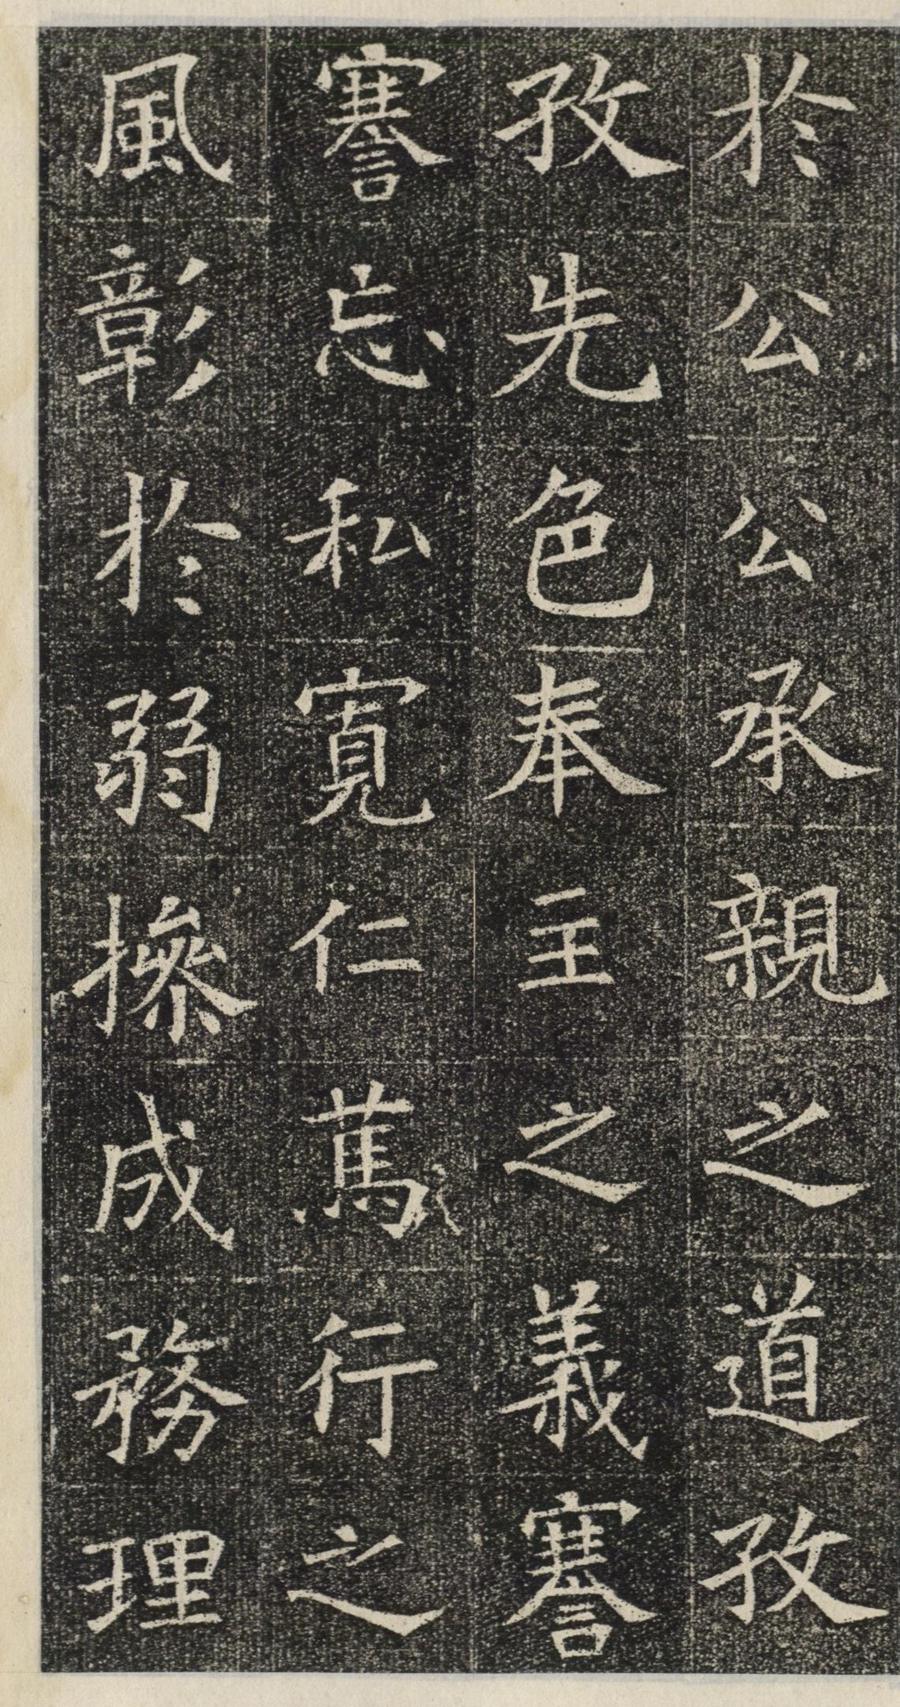 於公公承親之道孜
孜先色奉主之義謇
謇忘私寬仁篤行之
風彰於弱操成務理